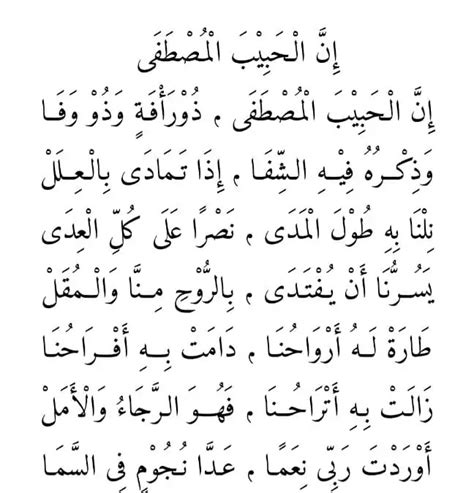 إِنَّ الْحَبِيْبَ الْمُصْطَفَى
إِنَّ الْحَبِيْبَ الْمُصْطَفَى م ذُوْرَأْفَةٍ وَذُوْ وَفَا
وَذِكْرُهُ فِيْهِ الشِّفَا م إِذَا تَمَادَى بِالْعِلَلْ
نِلْنَا بِهِ طُوْلَ الْمَدَى م نَصْرًا عَلَى كُلِّ الْعِدَى
يَسُرُّنَا أَنْ يُفْتَدَى م بِالرُّوْحِ مِنَّا وَالْمُقَلْ
طَارَةْ لَهُ أَرْوَاحُنَا م دَامَتْ بِهِ أَفْرَاحُنَا
زَالَتْ بِهِ أَتْرَاحُنَا م فَهُوَ الرَّجَاءُ وَالْأَمَلْ
أَوْرَدْتَ رَبِّى نِعَمًا م عَدَّا نُجُوْمٍ فِى السَّمَا